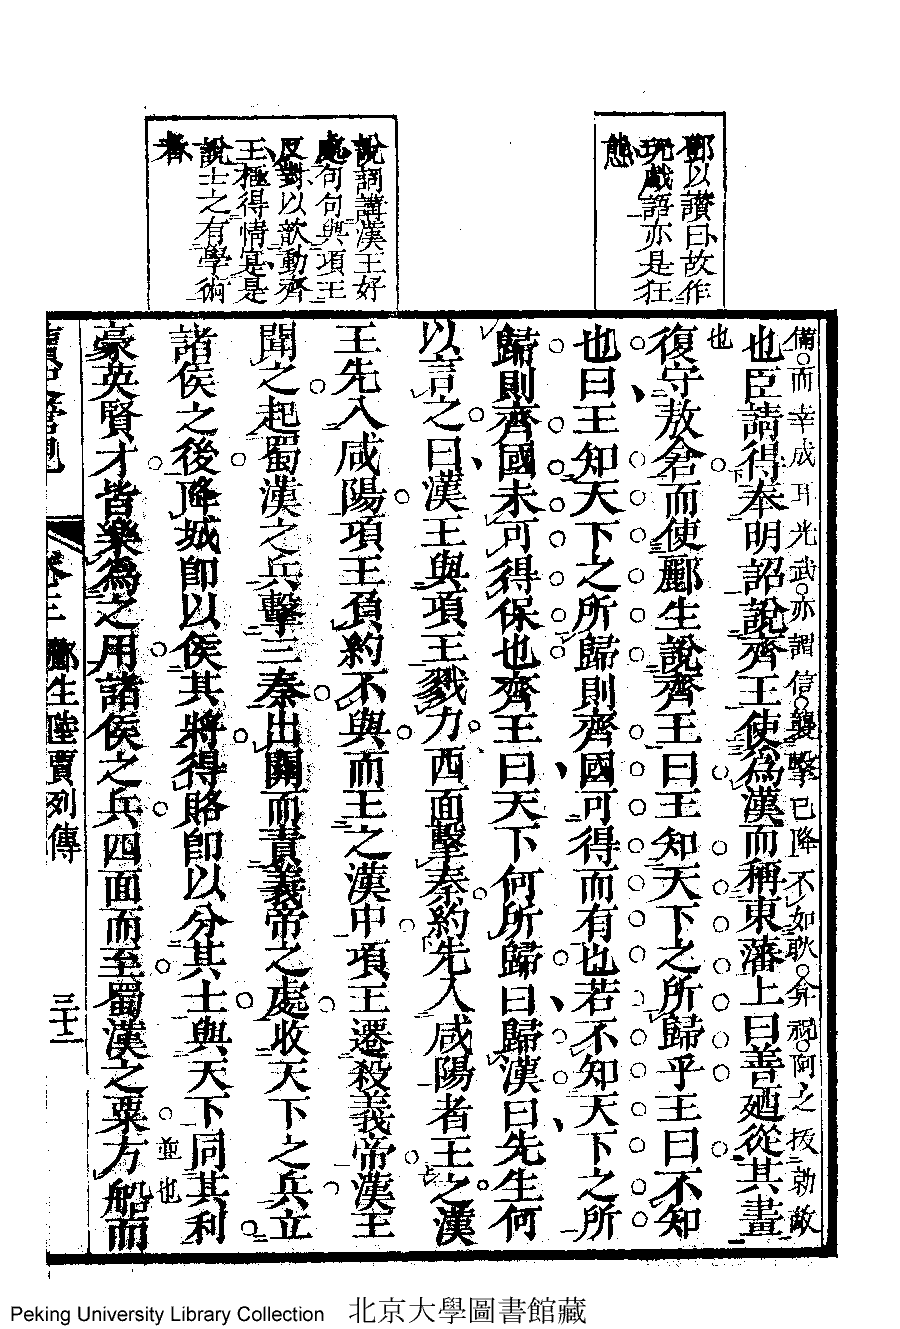 鄧以讚曰故作
玩戲語亦是狂
態
說詞講漢王好
處句句與項王
反對以歆動齊
王極得情寔是
說士之有學術
者
備而幸成耳光武亦謂信襲擊已降不如耿弇視阿之拔勍敵
也
也臣請得奉明詔說齊王使為漢而稱東藩上曰善廼從其畫
復守敖倉而使酈生說齊王曰王知天下之所歸乎王曰不知
也曰王知天下之所歸則齊國可得而有也若不知天下之所
歸則齊國未可得保也齊王曰天下何所歸曰歸漢曰先生何
以言之曰漢王與項王戮力西面擊秦約先入咸陽者王之漢
王先入咸陽項王負約不與而王之漢中項王遷殺義帝漢王
聞之起蜀漢之兵擊三秦出關而責義帝之處收天下之兵立
諸侯之後降城即以侯其將得賂即以分其士與天下同其利
豪英賢才皆樂為之用諸侯之兵四面而至蜀漢之粟方船而
並也
卷三 酈生陸賈列傳 三十二
Peking University Library Collection 北京大學圖書館藏